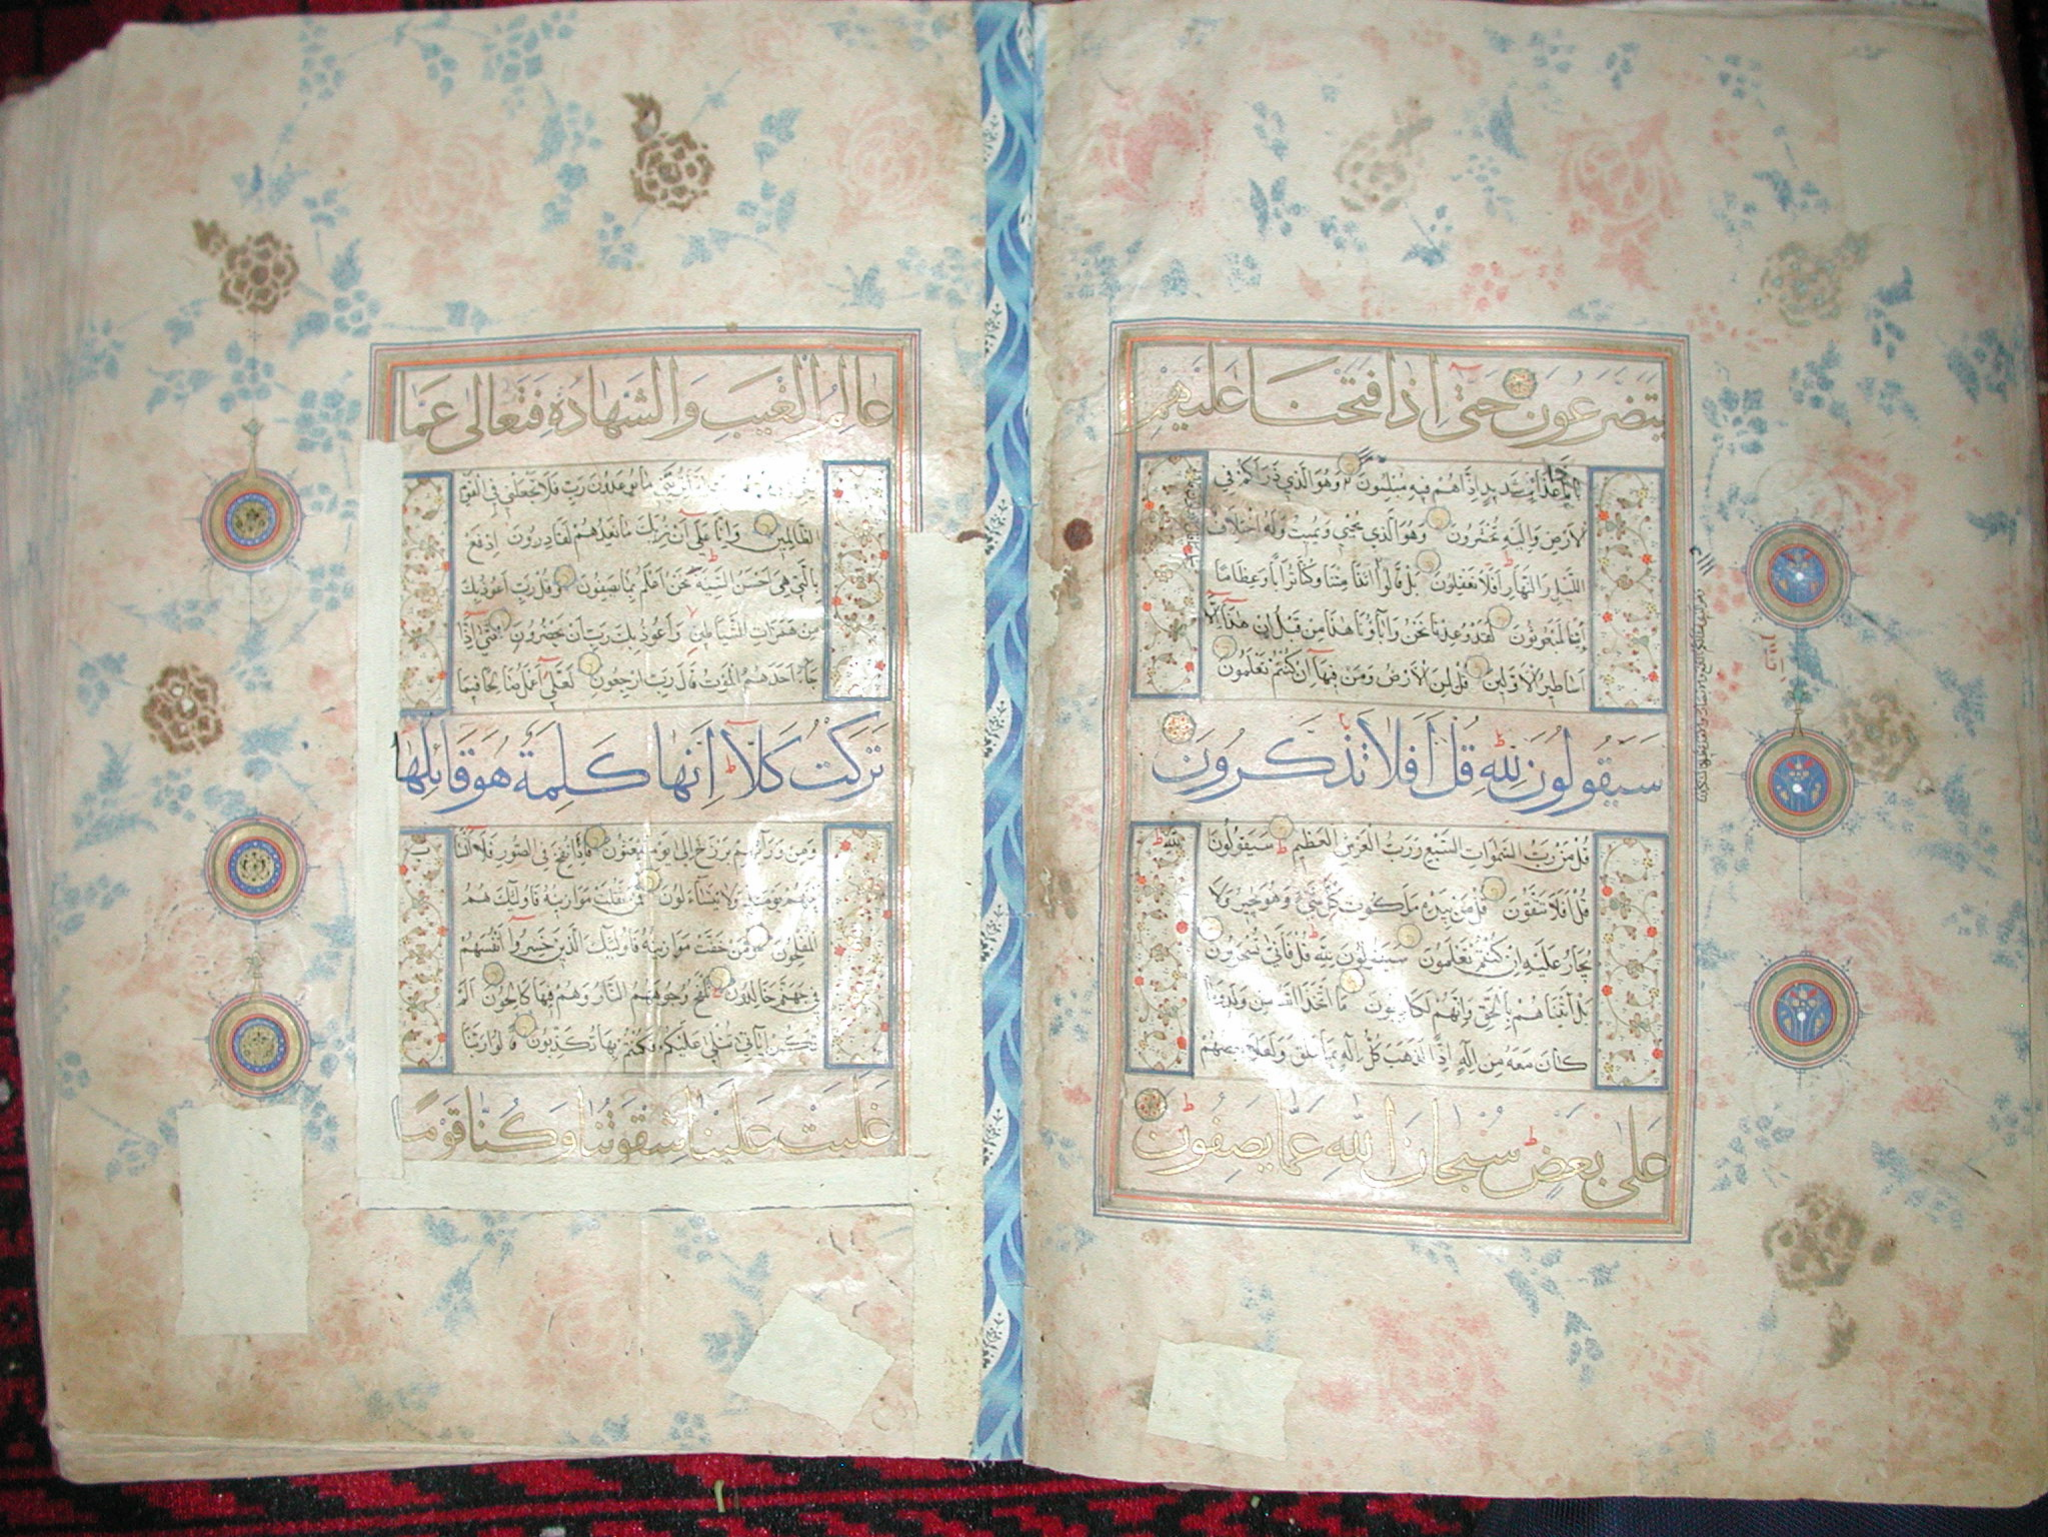 يتضرعون حتى اذا فتحنا عليهم
بابا ذا عذاب شديد اذا هم فيه مبلسون وهو الذي ذرأكم في
الارض واليه تحشرون وهو الذي يحيي ويميت وله اختلاف
الليل والنهار افلا تعقلون بل قالوا ائذا متنا وكنا ترابا وعظاما
ائنا لمبعوثون لقد وعدنا نحن وآباؤنا هذا من قبل ان هذا الا
اساطير الاولين قل لمن الارض ومن فيها ان كنتم تعلمون
سيقولون لله قل افلا تذكرون
قل من رب السموات السبع ورب العرش العظيم سيقولون لله
قل افلا تتقون قل من بيده ملكوت كل شيء وهو يجير ولا
يجار عليه ان كنتم تعلمون سيقولون لله قل فأنى تسحرون
بل أتيناهم بالحق وانهم لكاذبون ما اتخذ الله من ولد وما
كان معه من اله اذا لذهب كل اله بما خلق ولعلا بعضهم
على بعض سبحان الله عما يصفون
عالم الغيب والشهادة فتعالى عما
ما يوعدون رب فلا تجعلني في القوم
الظالمين وانا على ان نريك ما نعدهم لقادرون ادفع
بالتي هي احسن السيئة نحن اعلم بما يصفون وقل رب اعوذ بك
من همزات الشياطين واعوذ بك رب ان يحضرون حتى اذا
جاء احدهم الموت قال رب ارجعون لعلي اعمل صالحا فيما
تركت كلا انها كلمة هو قائلها
ومن ورائهم برزخ الى يوم يبعثون فاذا نفخ في الصور فلا انساب
بينهم يومئذ ولا يتساءلون فمن ثقلت موازينه فاولئك هم
المفلحون ومن خفت موازينه فاولئك الذين خسروا انفسهم
في جهنم خالدون تلفح وجوههم النار وهم فيها كالحون الم
تكن آياتي تتلى عليكم فكنتم بها تكذبون قالوا ربنا
غلبت علينا شقوتنا وكنا قوما